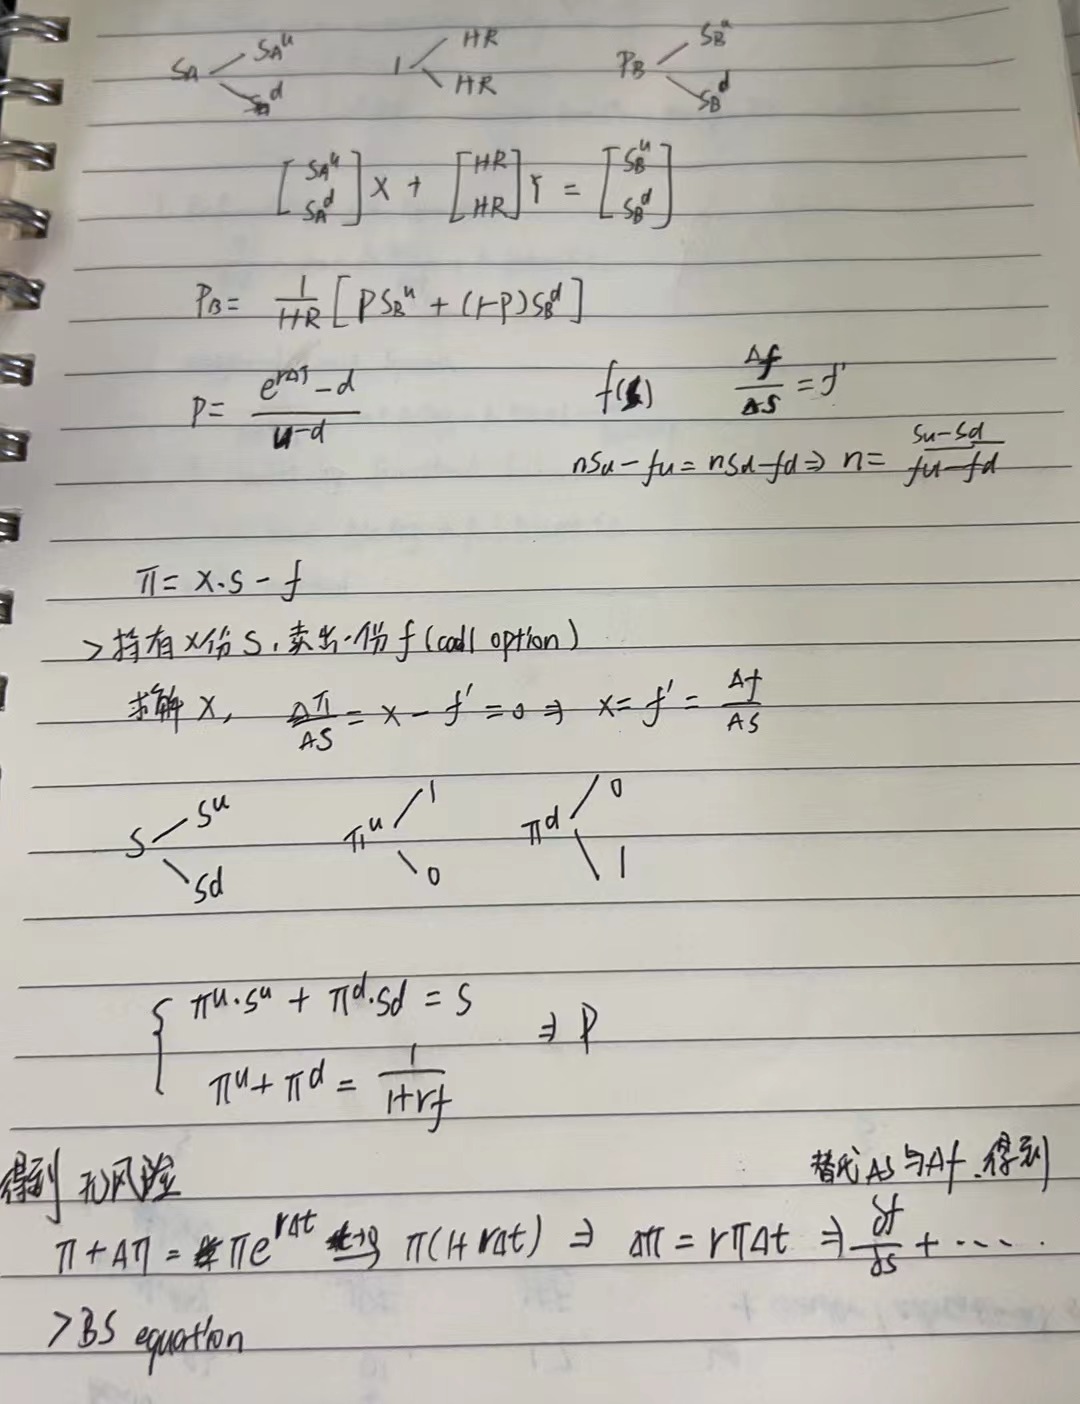 S_A S_A^u S_A^d 1 HR HR P_B S_B^u S_B^d
[S_A^u S_A^d] X + [HR HR] Y = [S_B^u S_B^d]
P_B = 1/HR [P S_B^u + (1-P) S_B^d]
P = (e^{rΔT} - d)/(u-d) f(S) Δf/ΔS = f'
nSu - fu = nSd - fd ⇒ n = (Su-Sd)/(fu-fd)
π = X·S - f
> 持有X份S,卖出一份f(call option)
求解X, Δπ/ΔS = X - f' = 0 ⇒ X = f' = Δf/ΔS
S S^u Sd π^u 1 0 π^d 0 1
π^u·S^u + π^d·Sd = S ⇒ P
π^u + π^d = 1/(1+rf)
得到无风险 替代ΔS与Δf,得到
π + Δπ = πe^{rΔt} π(1+rΔt) ⇒ Δπ = rπΔt ⇒ ∂f/∂S + ....
> BS equation